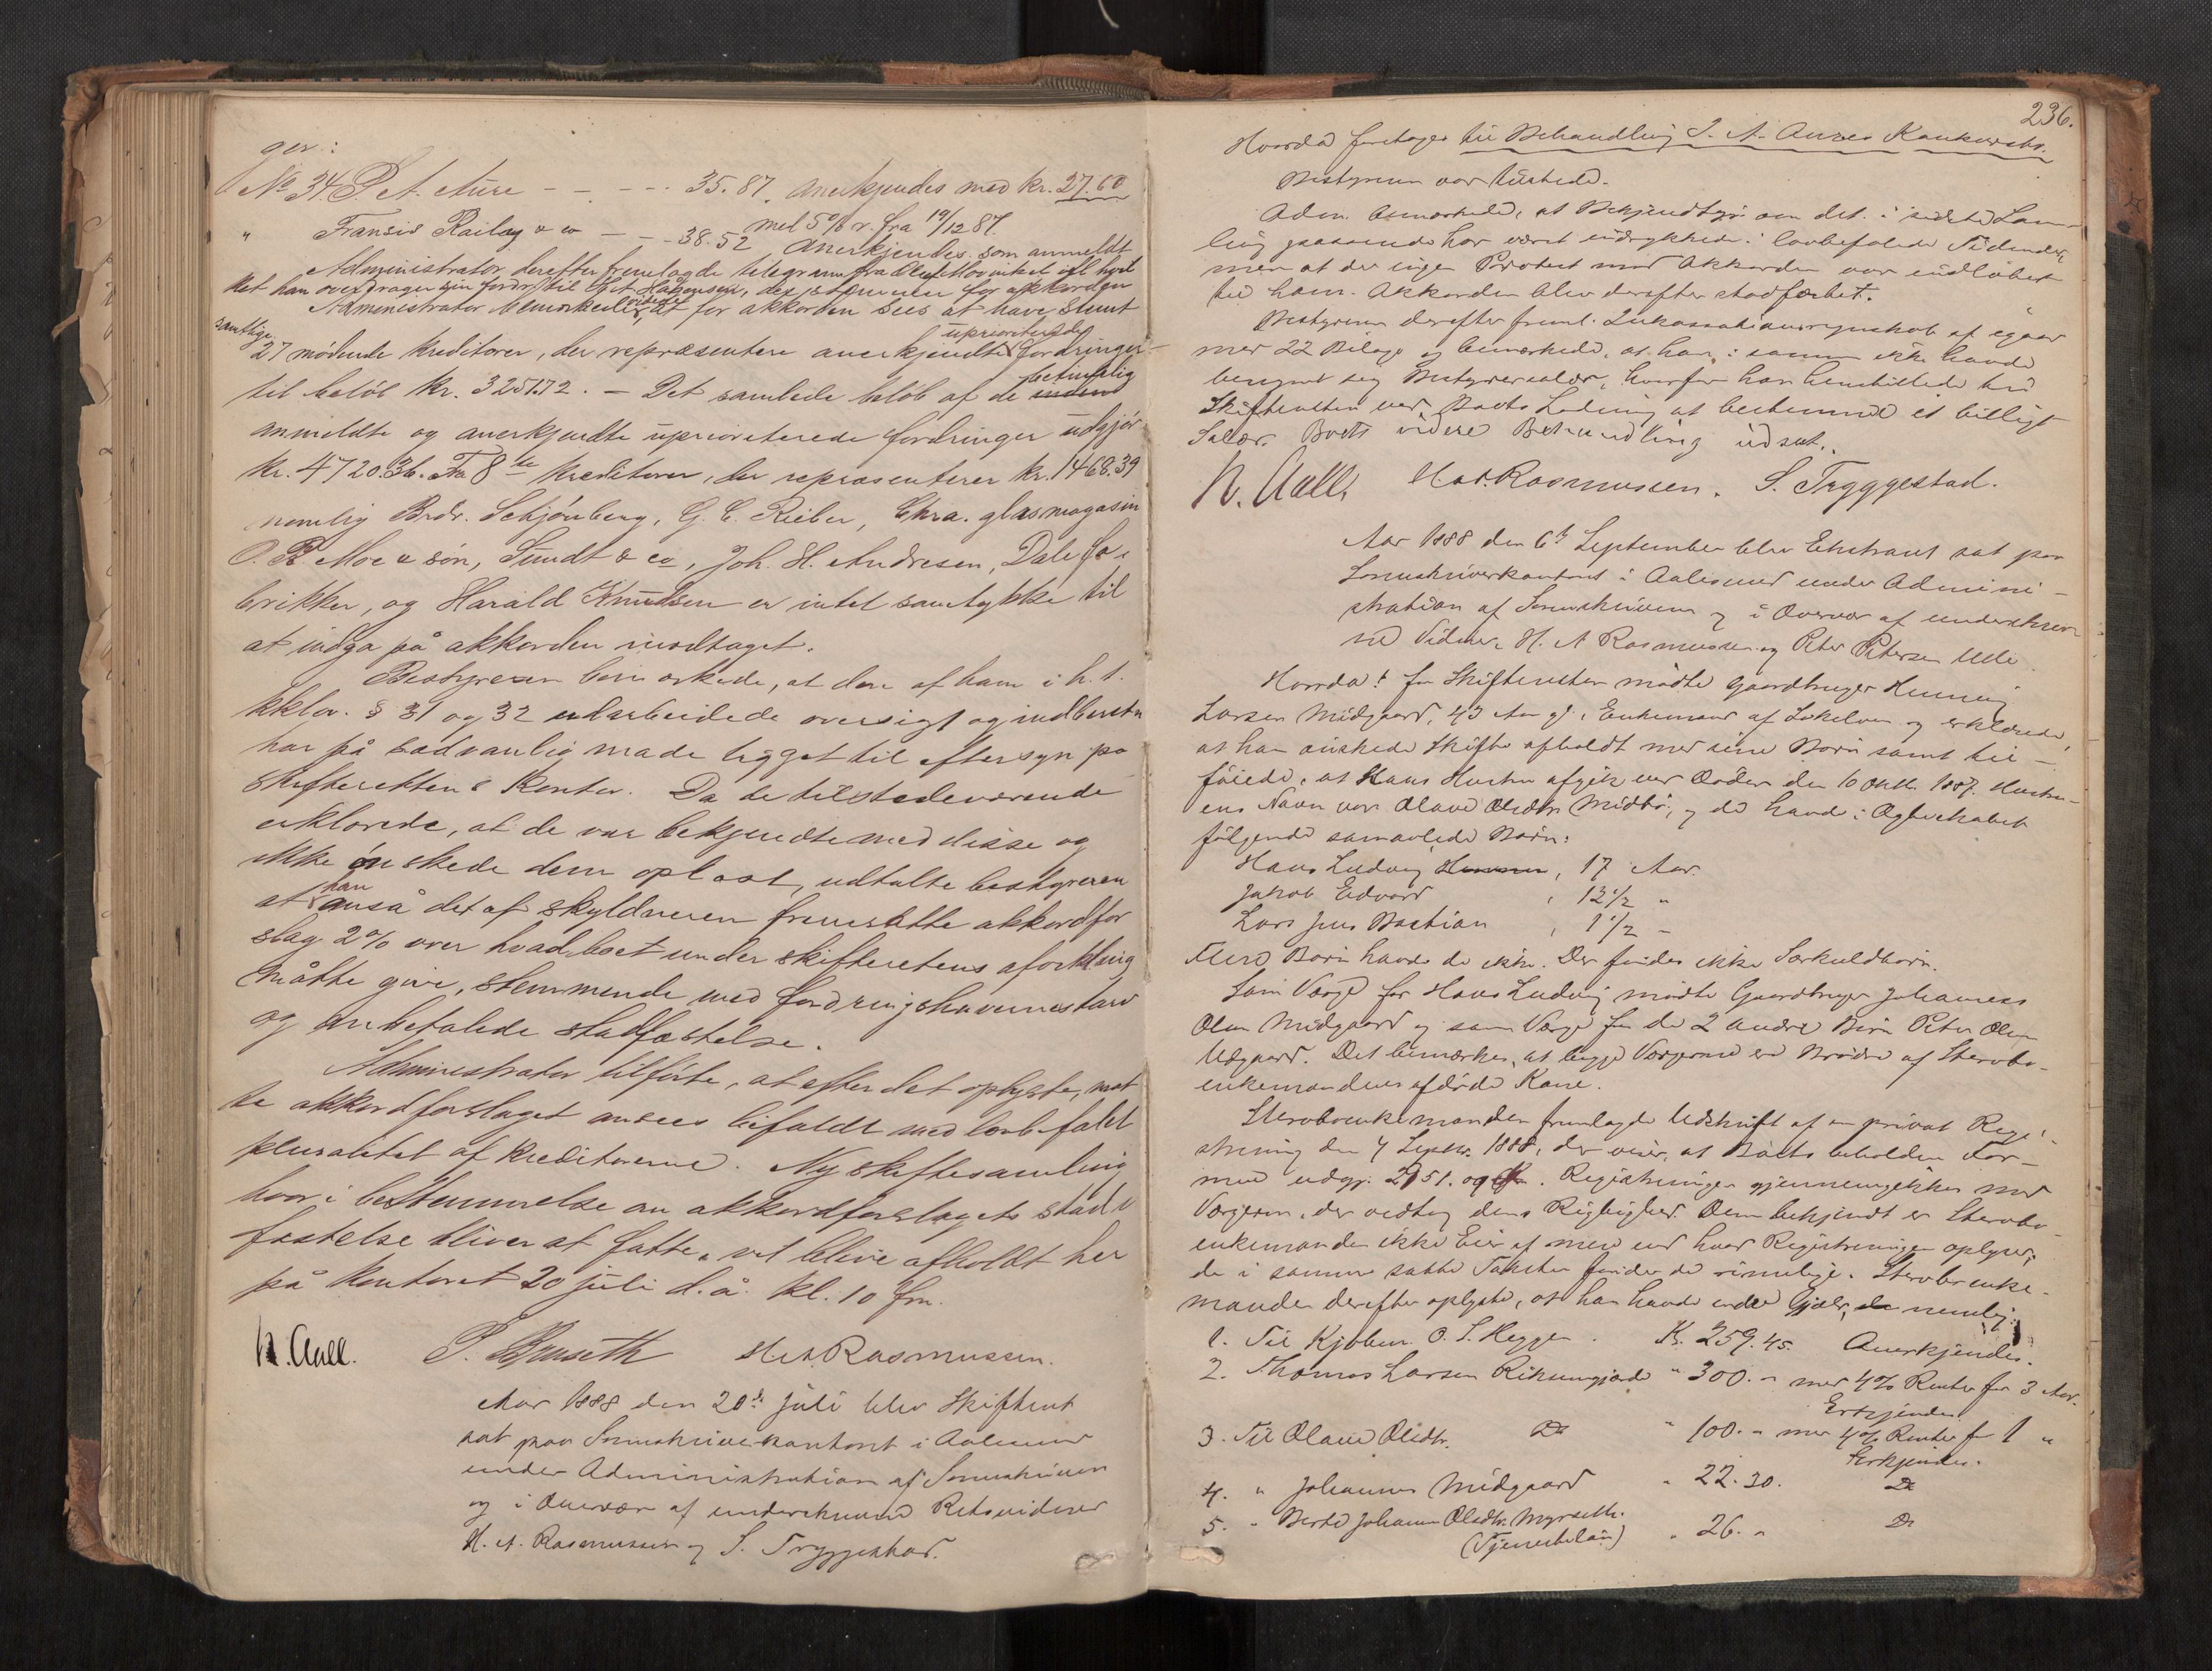 ger:
No 34 P. A. Aure - - - - 35.87. anerkjendes med kr. 27.60
med 5% r. fra 10/12 87.
" Fransis Railag & co - - - 38.52 Anerkjendes som anmeldt
Administrator derefter fremlagde telegram fra Oluf Movinkel ifl. hvil
ket han overdrager sin fordr. til Chst Hakonsen, der stemmer for akkorden
Administrator bemærkede videre, at for akkorden sees at have stemt
samtlige
27 mödende kreditorer, der repræsentere anerkjendte upriorterede fordringer
til belöb kr. 3251.72. — Det samlede belöb af de betimelig
anmeldte og anerkjendte uprioriterede fordringer udgjör
kr. 4720.36. Fra 8te kreditorer, der repræsenterer kr. 1468.39
nemlig Brdr. Schjönberg, G. C. Rieber, Chra. glasmagasin
O. B. Moe & sön, Sundt & co, Joh. H. Andresen, Dale fa-
brikker, og Harald Knudsen er intet samtykke til
at indga på akkorden modtaget.
Bestyreren bemærkede, at den af ham i h. t.
kklov. § 31 og 32 udarbeidede oversigt og indberetn
har på sædvanlig made ligget til eftersyn på
skifterettens kontor. Da de tilstedeværende
erklærede, at de var bekjendte med disse og
ikke önskede dem oplæst, udtalte bestyreren
at han anså det af skyldneren fremsatte akkordfor
slag 2% over hvad boet under skifterettens aforkling
måtte give, stemmende med fordringshavernes tarv
og anbefalede stadfæstelse.
Administrator tilförte, at efter det oplyste, mat
te akkordforslaget ansees bifaldt med lovbefalet
pluralitet af kreditorerne. Ny skiftesamling
hvori bestemmelse om akkordforslagets stad
fæstelse bliver at fatte, vil blive afholdt her
på kontoret 20 juli d. å. kl. 10 fm.
N. Aall. P. Bruseth H A Rasmussen.
Aar 1888 den 20de Juli blev Skifteret
sat paa Sorenskriverkontoret i Aalesund
under Administration af Sorenskriveren
og i Overvær af underskrevne Retsvidner
H. A. Rasmussen og S. Tryggestad.
236.
Hvorda foretages til Behandling P. A. Aures Konkursbo.
Bestyreren var tilstede.
Adm. bemærkede, at Bekjendtgj. om det i sidste Sam-
ling passerede har været indrykkede i lovbefalede Tidender,
men at der ingen Protest mod Akkorden var indlöbet
til ham. Akkorden blev derefter stadfæstet.
Bestyreren derefter freml. Inkassationsregnskab af igaar
med 22 Bilage og bemærkede, at han i samme ikke havde
beregnet sig Bestyrersalær, hvorfor han henstillede til
Skifteretten ved Boets Ledning at bestemme et billigt
Salær. Boets videre Behandling udsat.
N. Aall. H A Rasmussen. S. Tryggestad.
Aar 1888 den 6te September blev Ekstraret sat paa
Sorenskriverkontoret i Aalesund under Admini-
stration af Sorenskriveren og i Overvær af underskrev
ne Vidner H. A Rasmussen og Peter Petersen Ulle.
Hvorda: for Skifteretten mödte Gaardbruger Henning
Larsen Midgaard, 43 Aar gl., Enkemand af Sökelven og erklærede,
at han önskede Skifte afholdt med sine Börn samt til-
föiede, at Hans Hustru afgik ved Döden den 10 Oktbr. 1887. Hustru-
ens Navn var Olave Olsdtr. Midtbö, og de havde i Ægteskabet
fölgende samavlede Börn:
Hans Ludvig, 17 Aar.
Jakob Edvard, 12 1/2 "
Lars Jens Bastian, 1 1/2 -
Flere Börn havde de ikke. Der findes ikke Særkuldbörn.
Som Værge for Hans Ludvig mödte Gaardbruger Johannes
Olsen Midgaard og som Værge for de 2 andre Börn Peter Olsen
Udgaard. Det bemærkes, at begge Værgerne er Brödre af Stervbo-
enkemandens afdöde Kone.
Stervboenkemanden fremlagde Udskrift af en privat Regi-
strering den 4 Septbr. 1888, der viser, at Boets beholdne For-
mue udgj. 2151. og . Registreringen gjennemgikkes med
Værgerne, der vedtog dens Rigtighed. Dem bekjendt er Stervbo
enkemanden ikke Eier af mere end hvad Registreringen oplyser;
de i samme satte Takster fandes de rimelige. Stervboenke-
manden derefter oplyste, at han havde endel Gjæld, nemlig:
1. Til Kjöbm. O. S. Heggen . K. 259.45. Anerkjendes.
2. Thomas Larsen Rikmngjærde " 300. - med 4% Renter for 3 Aar.
Erkjendes.
3. Til Olave Olsdtr. Do " 100. - med 4% Renter f 1 "
Erkjendes.
4. " Johannes Midgaard " 22.30. Do
5. - Berte Johanne Olsdtr. Myrseth.
(Tjenestelön) " 26. - Do